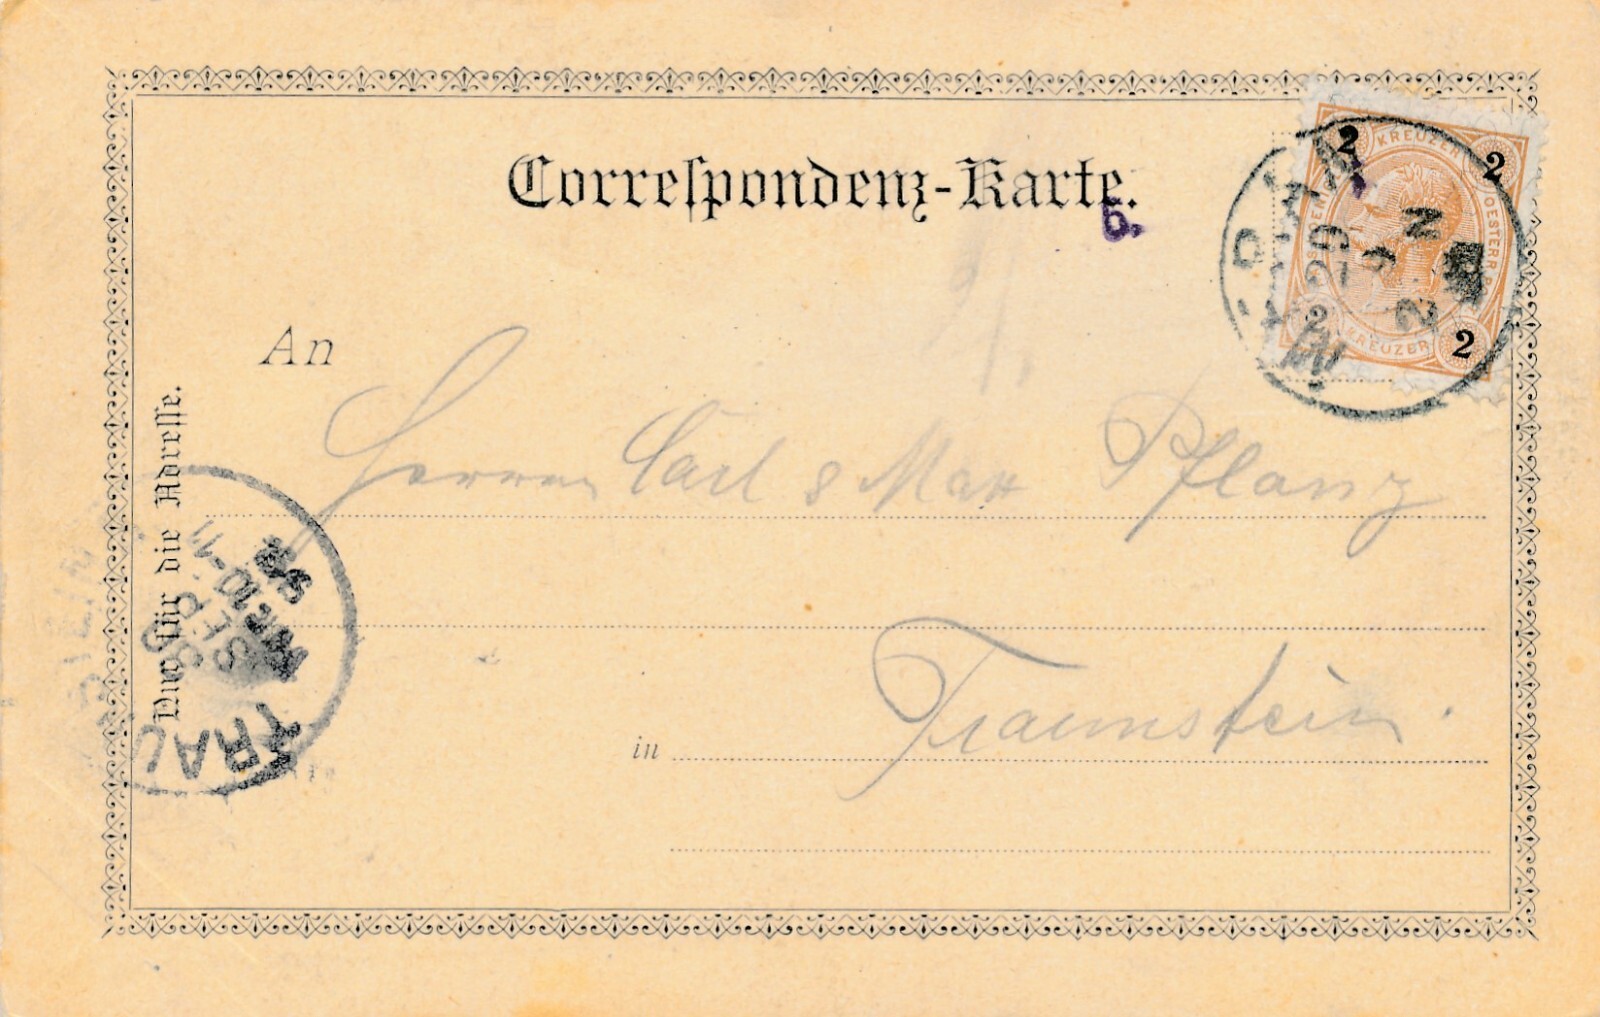 Correspondenz-Karte.
6.
2 KREUZER 2
2 KREUZER 2
An
Herren Carl & Max Pflanz
in Traunstein.
Nur für die Adresse.
29
TRAU
SEP
10-11